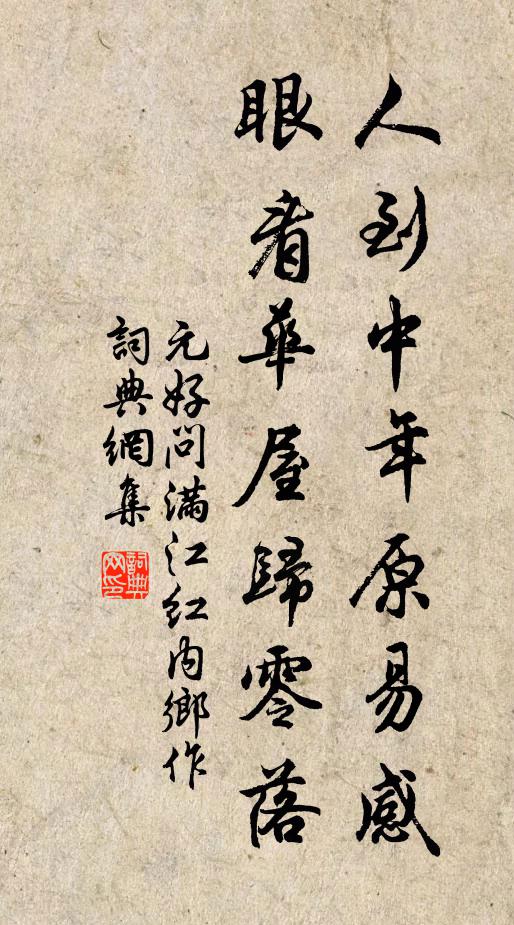 人到中年原易感
眼看華屋歸零落
元好问满江红内鄉作
詞典網集
詞典网印